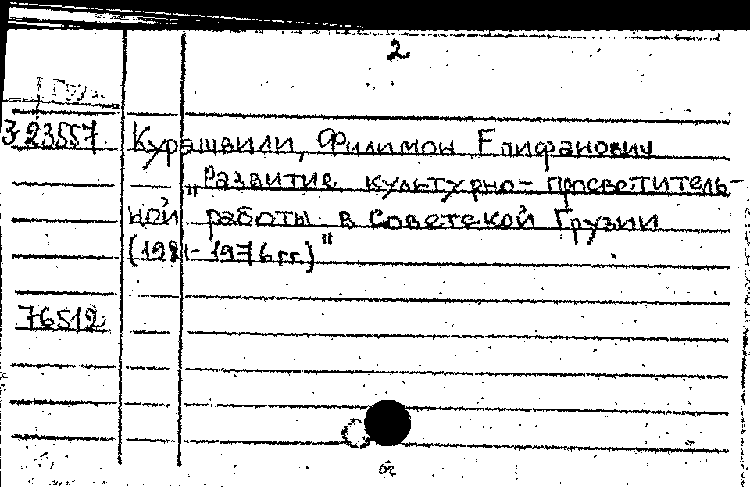 2
Груз
3-23557 Курашвили, Филимон Епифанович
"Развитие культурно-просветитель-
ной работы в Советской Грузии
(1921-1976гг)"
76512